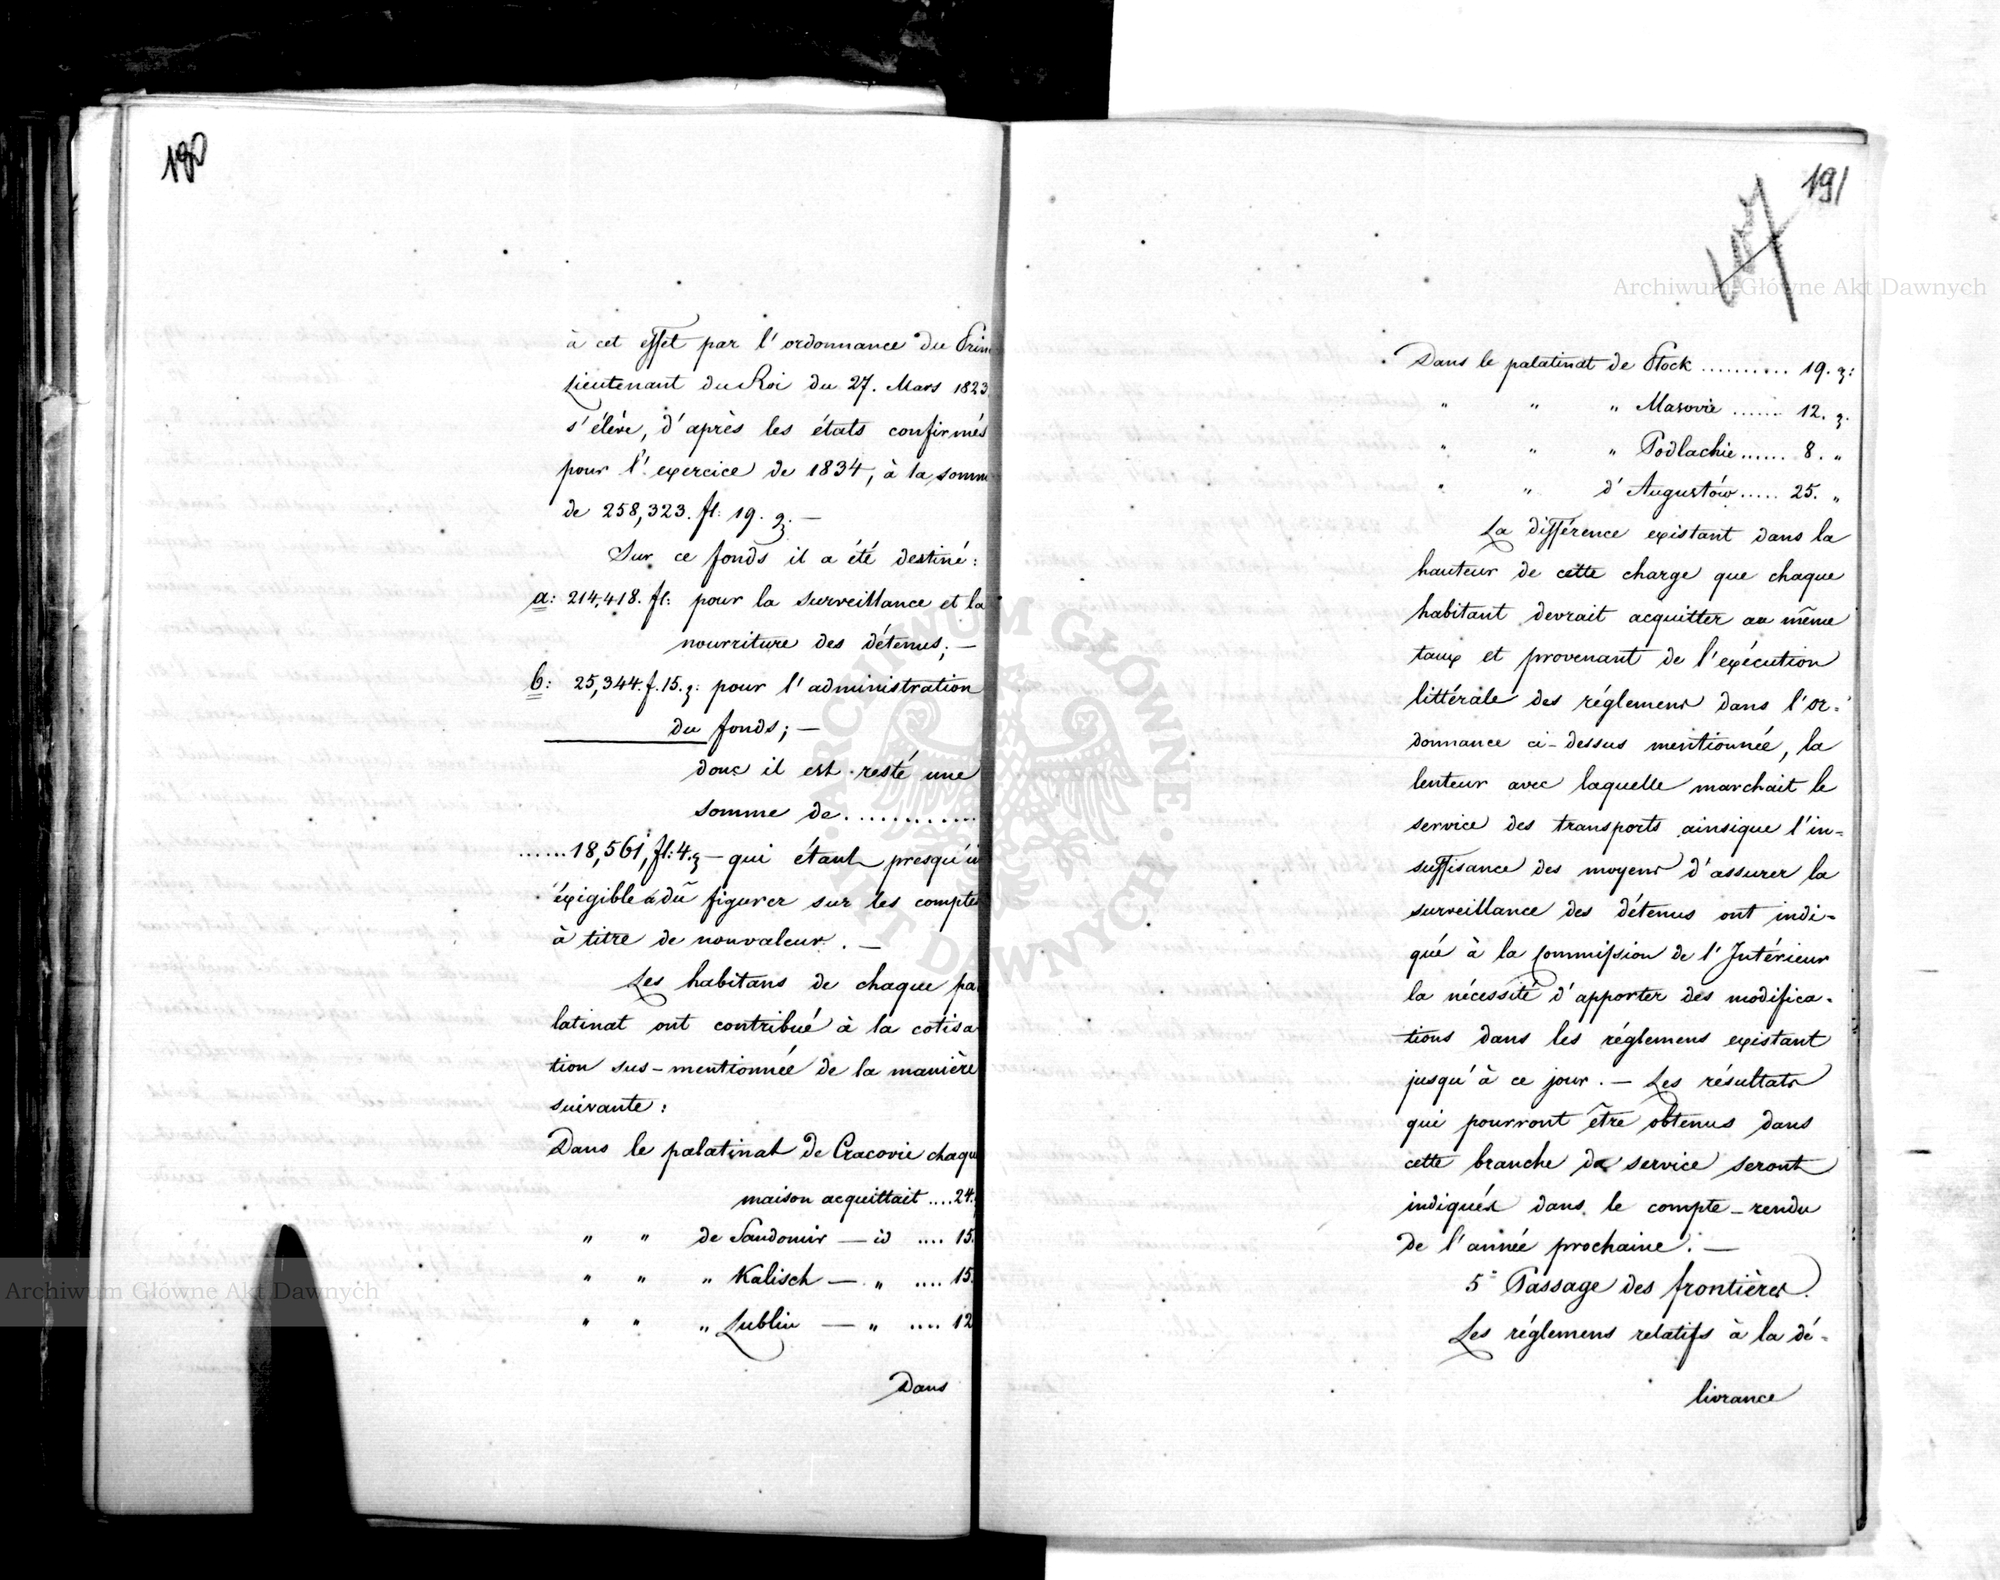 190
à cet effet par l'ordonnance du Prin
Lieutenant du Roi du 27. Mars 1823
s'élève, d'après les états confirmés
pour l'exercice de 1834, à la somm
de 258,323. fl: 19. g. —
Sur ce fonds il a été destiné:
a: 214,418. fl: pour la surveillance et la
nourriture des détenus; —
b: 25,344. f. 15. g: pour l'administration
du fonds; —
donc il est resté une
somme de............
......18,561, fl: 4. g — qui étant presqu'in
éxigible a dû figurer sur les compte
à titre de nonvaleur. —
Les habitans de chaque pa
latinat ont contribué à la cotisa
tion sus-mentionnée de la manière
suivante:
Dans le palatinat de Cracovie chaqu
maison acquittait .... 24.
" " de Sandomir — id .... 15.
" " " Kalisch — " .... 15.
" " " Lublin — " .... 12
Dans
191
107
Dans le palatinat de Plock .......... 19. g:
" " " Masovie ...... 12. g.
" " " Podlachie...... 8. "
" " d'Augustów..... 25. "
La différence existant dans la
hauteur de cette charge que chaque
habitant devrait acquitter au même
taux et provenant de l'exécution
littérale des réglemens dans l'or-
donnance ci-dessus mentionnée, la
lenteur avec laquelle marchait le
service des transports ainsique l'in-
suffisance des moyens d'assurer la
surveillance des détenus ont indi-
qué à la Commission de l'Intérieur
la nécessité d'apporter des modifica-
tions dans les réglemens existant
jusqu'à ce jour. — Les résultats
qui pourront être obtenus dans
cette branche de service seront
indiqués dans le compte-rendu
de l'année prochaine. —
5° Passage des frontières.
Les réglemens relatifs à la dé-
livrance
Archiwum Główne Akt Dawnych
Archiwum Główne Akt Dawnych
ARCHIWUM GŁÓWNE · AKT DAWNYCH ·